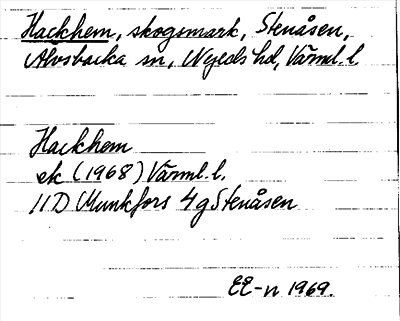 Hackhem, skogsmark, Stenåsen,
Alvsbacka sn, Nyeds hd, Värml. l.
Hackhem
ek (1968) Värml. l.
11D Munkfors 4g Stenåsen
EE-n 1969.